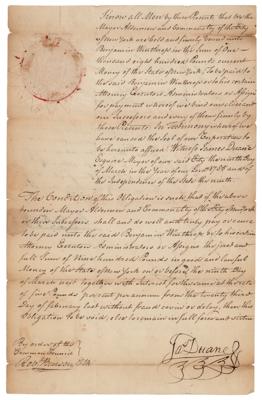 Know all Men by these Presents that We the
Mayor Aldermen and Commonalty of the City
of New York are held and firmly bound unto
Benjamin Winthrop in the Sum of One
thousand eight hundred Pounds current
Money of the State of New York To be paid to
the said Benjamin Winthrop or to his certain
Attorney Executors Administrators or Assigns
for payment whereof we bind ourselves and
our Successors and every of them firmly by
these Presents. In Testimony whereof we
have caused the Seal of our Corporation to
be hereunto affixed Witness James Duane
Esquire Mayor of our said City the ninth Day
of March in the Year of our Lord 1785 and of
the Independence of this State the ninth.
The Condition of this Obligation is such that if the above
bounden Mayor Aldermen and Commonalty of the City of New York
or their Successors shall and do well and truly pay or cause
to be paid unto the said Benjamin Winthrop or to his certain
Attorney Executors Administrators or Assigns the just and
full Sum of Nine hundred Pounds in good and lawful
Money of the State of New York on or before the ninth Day
of March next Together with Interest for the same at the rate
of five Pounds per cent per annum from the twenty third
Day of February last without fraud covin or delay, then this
Obligation to be void, else to remain in full force and virtue
By order of the
Common Council
Robt Benson Clk
Jas Duane